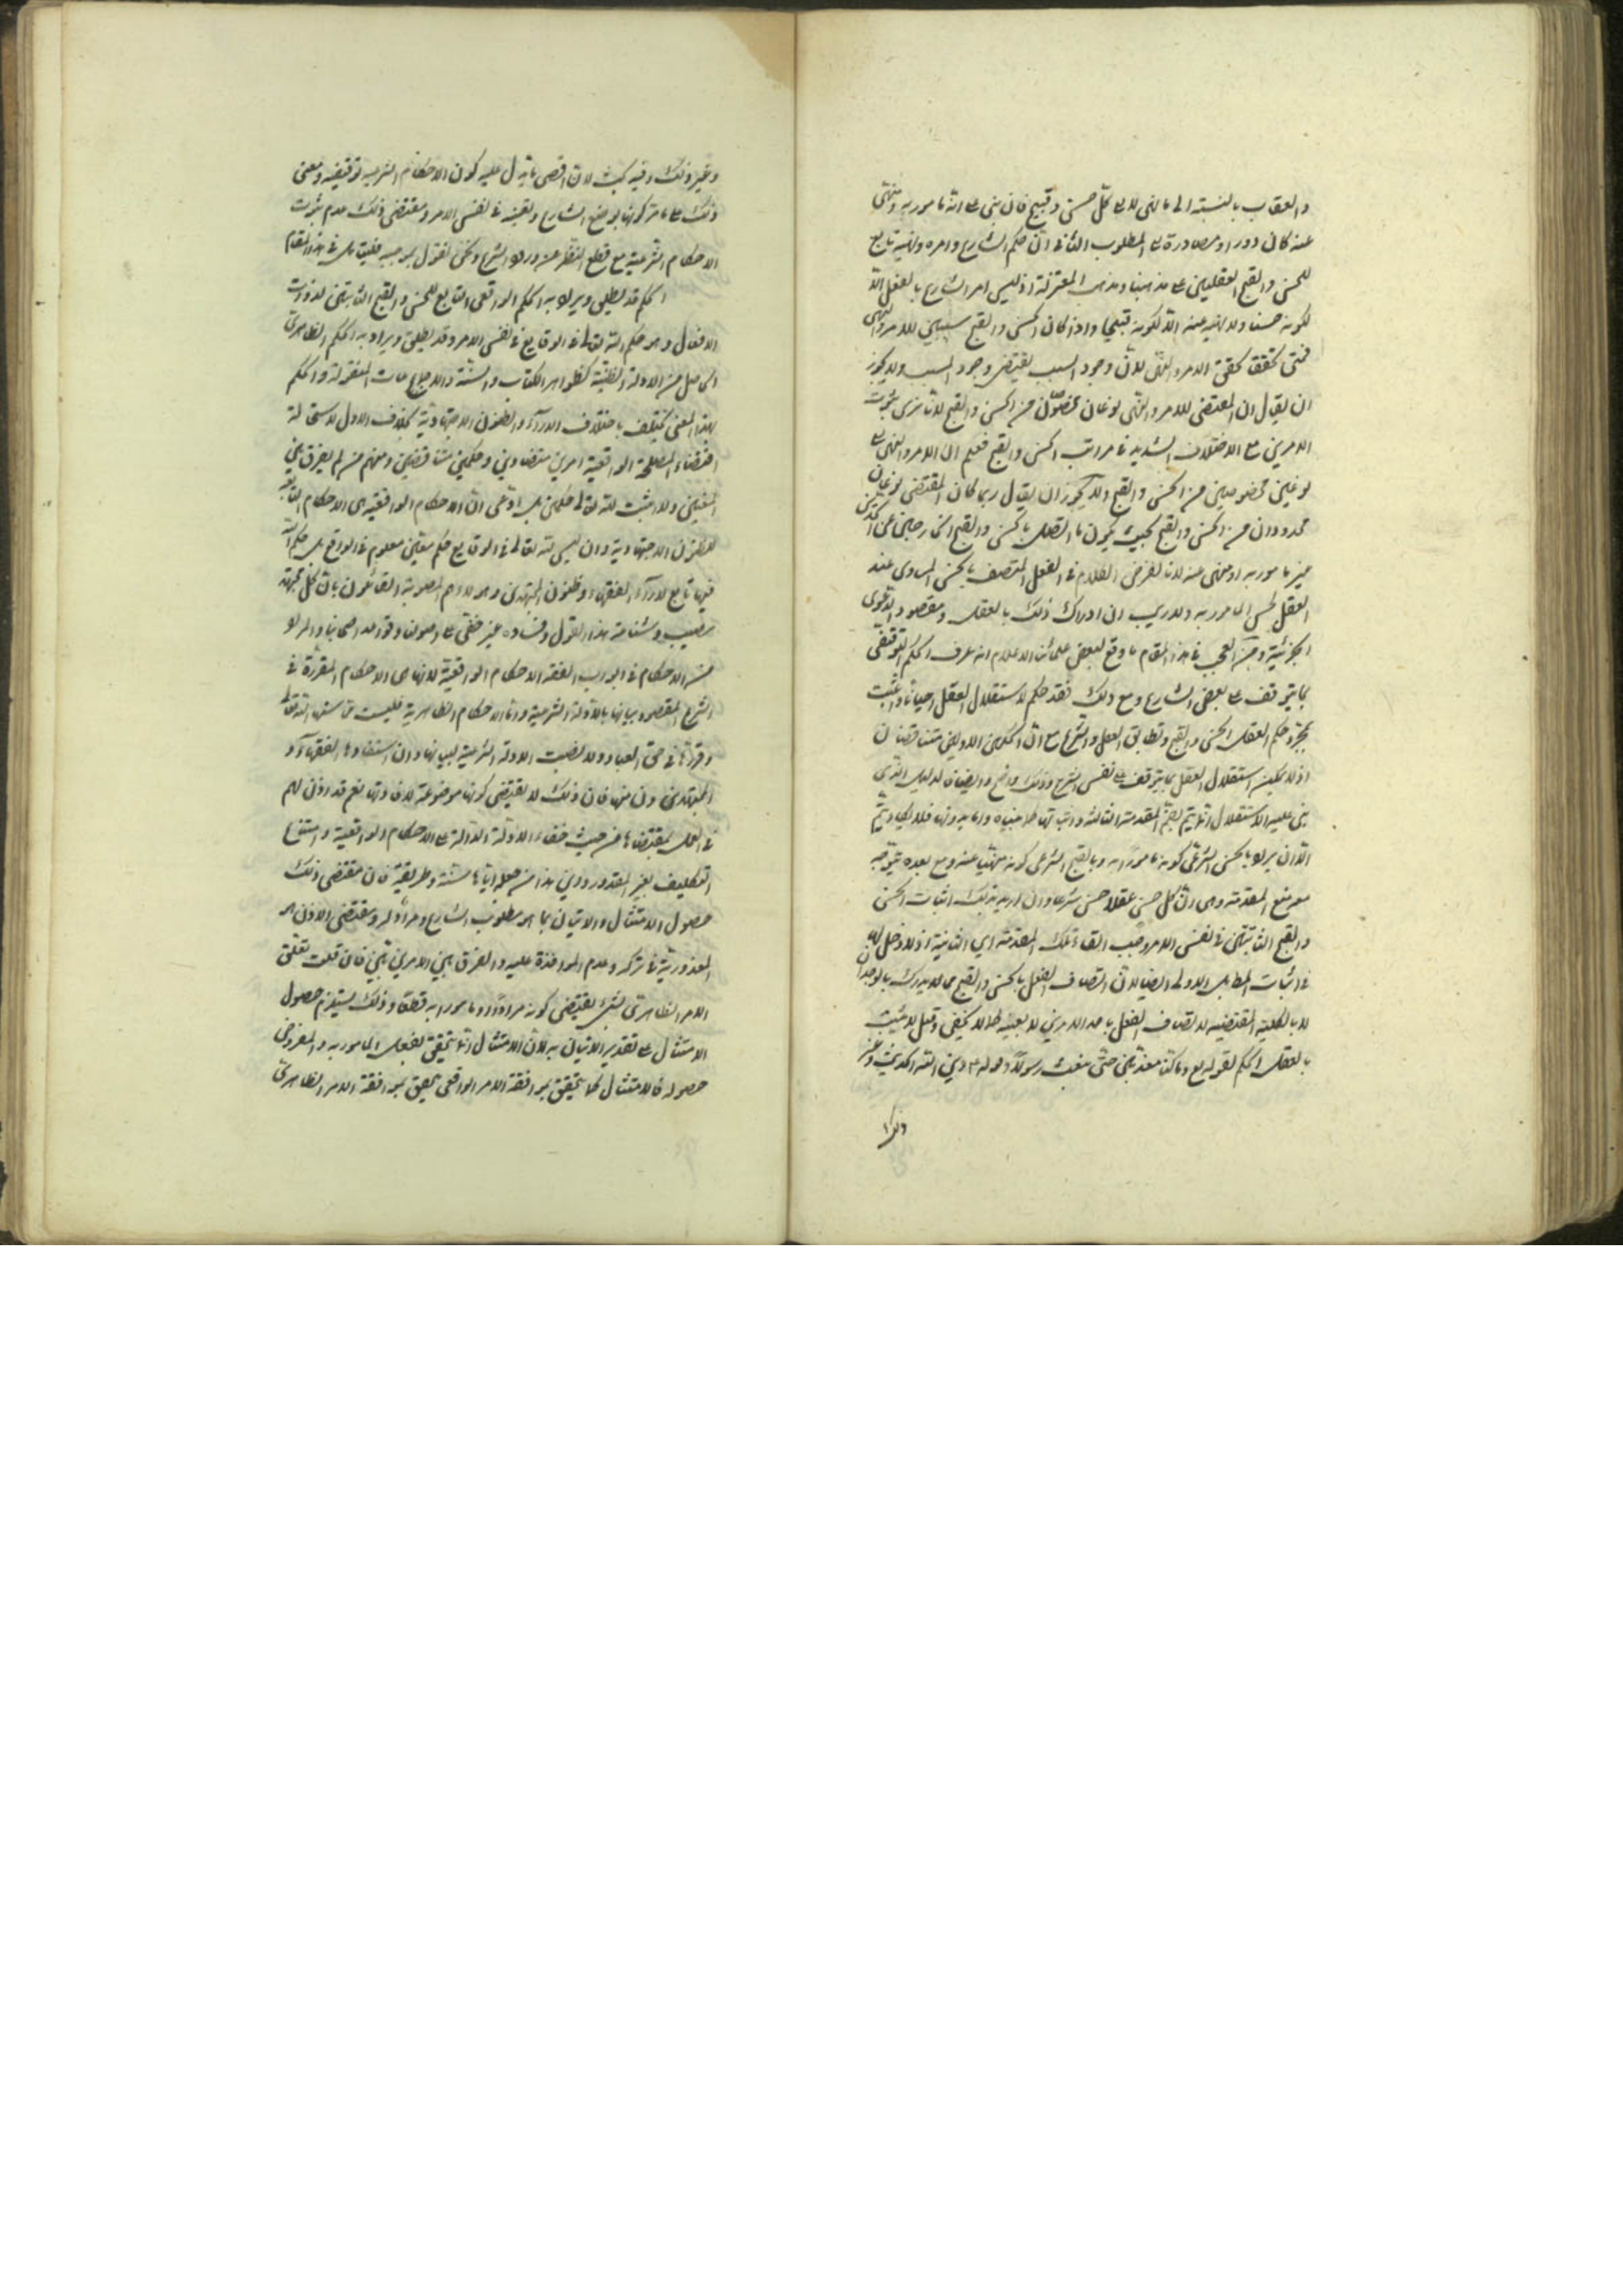 والعقاب بالنسبة الى ما لنهى للاعلى كل حسن وقبيح فان بنى على انه مامور به ومنهى
عنه كان دورا ومصادرة على المطلوب الثانى ان حكم الشارع وامره ونهيه تابع
للحسن والقبح العقليين على مذهبنا ومذهب المعتزلة اذ ليس امر الشارع بالفعل الا
لكونه حسنا ولا نهيه عنه الا لكونه قبيحا واذا كان الحسن والقبح سببين للامر والنهى
فمتى تحقق تحقق الامر والنهى لان وجود السبب يقتضى وجود المسبب ولا يجوز
ان يقال ان المقتضى للامر والنهى نوعان مخصوصان من الحسن والقبح لانا نرى ثبوت
الامرين مع الاختلاف الشديد فى مراتب الحسن والقبح فعلم ان الامر والنهى
نوعين مخصوصين من الحسن والقبح ولا يجوز ان يقال ربما كان المقتضى نوعان
محدودان من الحسن والقبح بحيث يكون ما اتصف بالحسن والقبح الخارجين عن الحدين
غير مامور به او منهى عنه لانا نفرض الكلام فى الفعل المتصف بالحسن المساوى عند
العقل لحسن المامور به ولا ريب ان ادراك ذلك بالعقل ومقصود الدعوى
الجزئية ومن العجب فى هذا المقام ما وقع لبعض علمائنا الاعلام انه عرف الحكم التوقيفى
بما يتوقف على بعض الشارع ومع ذلك فقد حكم لاستقلال العقل احيانا واثبت
بمجرد حكم العقل الحسن والقبح وتطابق العقل والشرع مع ان الحكمين الاولين متناقضان
اذ لا يمكن استقلال العقل بما يتوقف على نفس الشرع وذلك واضح وايضا فان الدليل الذى
بنى عليه الاستقلال انما يتم بضم المقدمة الثالثة واثباتها كما بيناه واما بدونها فلا يكاد يتم
الا ان يراد بالحسن الشرعى كونه مامورا به وبالقبح الشرعى كونه منهيا عنه ومع بعده يتوجه
منع المقدمة وهى ان كل حسن عقلا حسن شرعا وان اريد بذلك اثبات الحسن
والقبح الثابتين فى نفس الامر وجب القاء تلك المقدمة اى الثانية اذ لا دخل لها
فى اثبات المطلب الاولى ايضا لان اتصاف الفعل بالحسن والقبح مما يدرك بالوجدان
لا بالكلية المقتضية لاتصاف الفعل باحد الامرين لا بعينه كما لا يخفى وقيل لا يثبت
بالعقل الحكم لقوله تع وما كنا معذبين حتى نبعث رسولا وقوله ع دين الله الحديث وغير
ذلك
وغير ذلك وفيه بحث لان اقصى ما يدل عليه كون الاحكام الشرعية توقيفية ومعنى
ذلك على ما مر كونها بوضع الشارع وتعيينه فى نفس الامر ومقتضى ذلك عدم ثبوت
الاحكام الشرعية مع قطع النظر عن ورود الشرع ونحن نقول بموجبه فليتامل فى هذا المقام
الحكم قد يطلق ويراد به الحكم الواقعى التابع للحسن والقبح الثابتين لذوات
الافعال وهو حكم الله تعالى فى الوقايع فى نفس الامر وقد يطلق ويراد به الحكم الظاهرى
الحاصل من الادلة الظنية كظواهر الكتاب والسنة والاجماعات المنقولة والحكم
بهذا المعنى يختلف باختلاف الاراء والظنون الاجتهادية بخلاف الاول لاستحالة
اقتضاء المصلحة الواقعية امرين متضادين وحكمين متناقضين ومنهم من لم يفرق بين
المعنيين ولا اثبت لله تعالى حكمين بل ادعى ان الاحكام الواقعية هى الاحكام التابعة
للظنون الاجتهادية وان ليس لله تعالى فى الوقايع حكم معين معلوم فى الواقع بل حكم الله
فيها تابع لاراء الفقهاء وظنون المجتهدين وهؤلاء هم المصوبة القائلون بان كل مجتهد
مصيب وشناعة هذا القول وفساده غير خفى على اصولنا وقواعد اصحابنا والمراد
من الاحكام فى ابواب الفقه الاحكام الواقعية لانها هى الاحكام المقررة فى
الشرع المقصود بيانها بالادلة الشرعية واما الاحكام الظاهرية فليست مما سنها الله تعالى
وقررها فى حق العباد ولا نصبت الادلة الشرعية لبيانها وان استفادها الفقهاء و
المجتهدون منها فان ذلك لا يقتضى كونها موضوعة لافادتها نعم قد اذن لهم
فى العمل بمقتضاها من حيث خفاء الادلة الدالة على الاحكام الواقعية وامتناع
التكليف بغير المقدور واين هذا من جعله اياها سنة وطريقة فان مقتضى ذلك
حصول الامتثال والاتيان بما هو مطلوب الشارع ومراد له ومقتضى الاذن هو
المعذورية فى تركه وعدم المواخذة عليه والفرق بين الامرين بين فان قلت تعلق
الامر الظاهرى بشئ يقتضى كونه مرادا او مامورا به قطعا وذلك يستلزم حصول
الامتثال على تقدير الاتيان به لان الامتثال انما يتحقق بفعل المامور به والمفروض
حصوله فالامتثال كما يتحقق بموافقة الامر الواقعى يتحقق بموافقة الامر الظاهرى